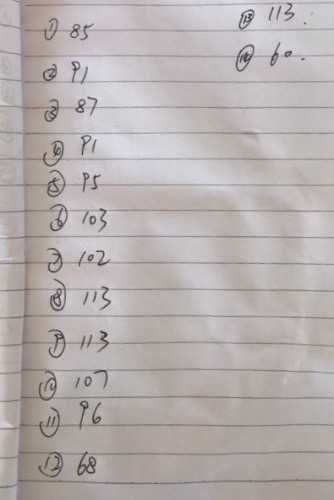 ① 85
② 91
③ 87
④ 91
⑤ 95
⑥ 103
⑦ 102
⑧ 113
⑨ 113
⑩ 107
⑪ 96
⑫ 68
⑬ 113.
⑭ 60.